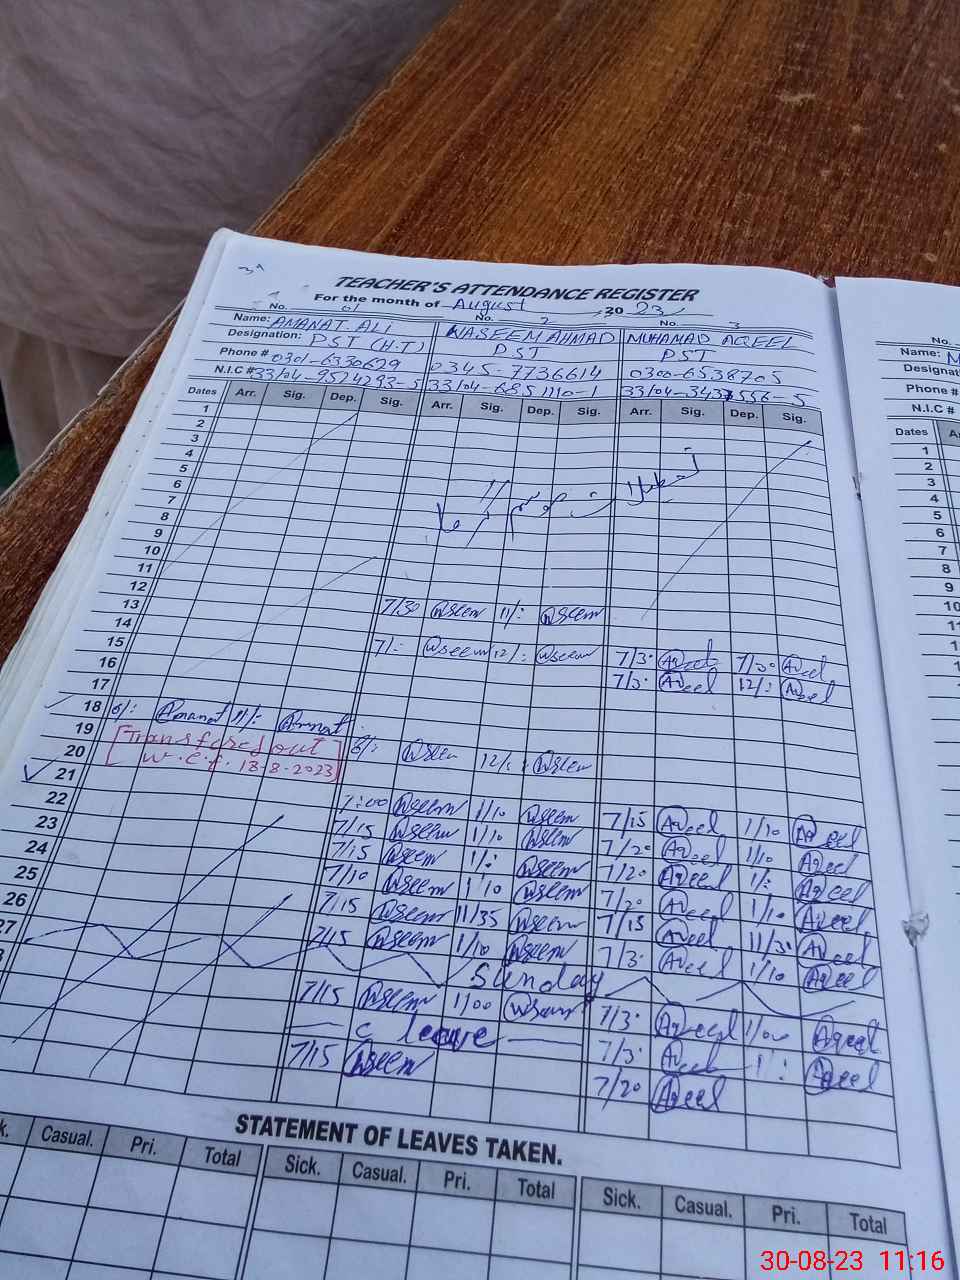 TEACHER'S ATTENDANCE REGISTER
For the month of August, 2023
No. 01 No. 2 No. 3
Name: AMANAT ALI WASEEM AHMAD MUHAMAD AQEEL
Designation: PST (H.T) PST PST
Phone # 0301-6330629 0345-7736614 0300-6538705
N.I.C # 33104-9524293-5 33104-6851110-1
Dates Arr. Sig. Dep. Sig. Arr. Sig. Dep. Sig. Arr. Sig. Dep. Sig.
1
2
3
4
5
6
7
8
9
10
11
12
13 7/30 Wseem 11/: Wseem
14
15 7/: Wseem 12/: Wseem 7/3: Aqeel 7/3: Aqeel
16 7/3: Aqeel 12/: Aqeel
17
18 8/: Amanat 11/: Amnat
19 [Transfered out 8/: Wseem 12/: Wseem
20 w.e.f. 18-8-2023]
21
22 7:00 Wseem 1/10 Wseem 7/15 Aqeel 1/10 Aqeel
23 7/15 Wseem 1/10 Wseem 7/20 Aqeel 1/10 Aqeel
24 7/15 Wseem 1/: Wseem 7/20 Aqeel 1/: Aqeel
25 7/10 Wseem 1/10 Wseem 7/20 Aqeel 1/10 Aqeel
26 7/15 Wseem 11/35 Wseem 7/15 Aqeel 11/3: Aqeel
27 7/15 Wseem 1/10 Wseem 7/3: Aqeel 1/10 Aqeel
Sunday
7/15 Wseem 1/00 Wseem 7/3: Aqeel 1/00 Aqeel
C leave 7/3: Aqeel 1/: Aqeel
7/15 Wseem 7/20 Aqeel
STATEMENT OF LEAVES TAKEN.
Casual. Pri. Total Sick. Casual. Pri. Total Sick. Casual. Pri. Total
No.
Name: M
Designat
Phone #
N.I.C #
Dates
1
2
3
4
5
6
7
8
9
10
11
12
13
14
15
16
17
30-08-23 11:16